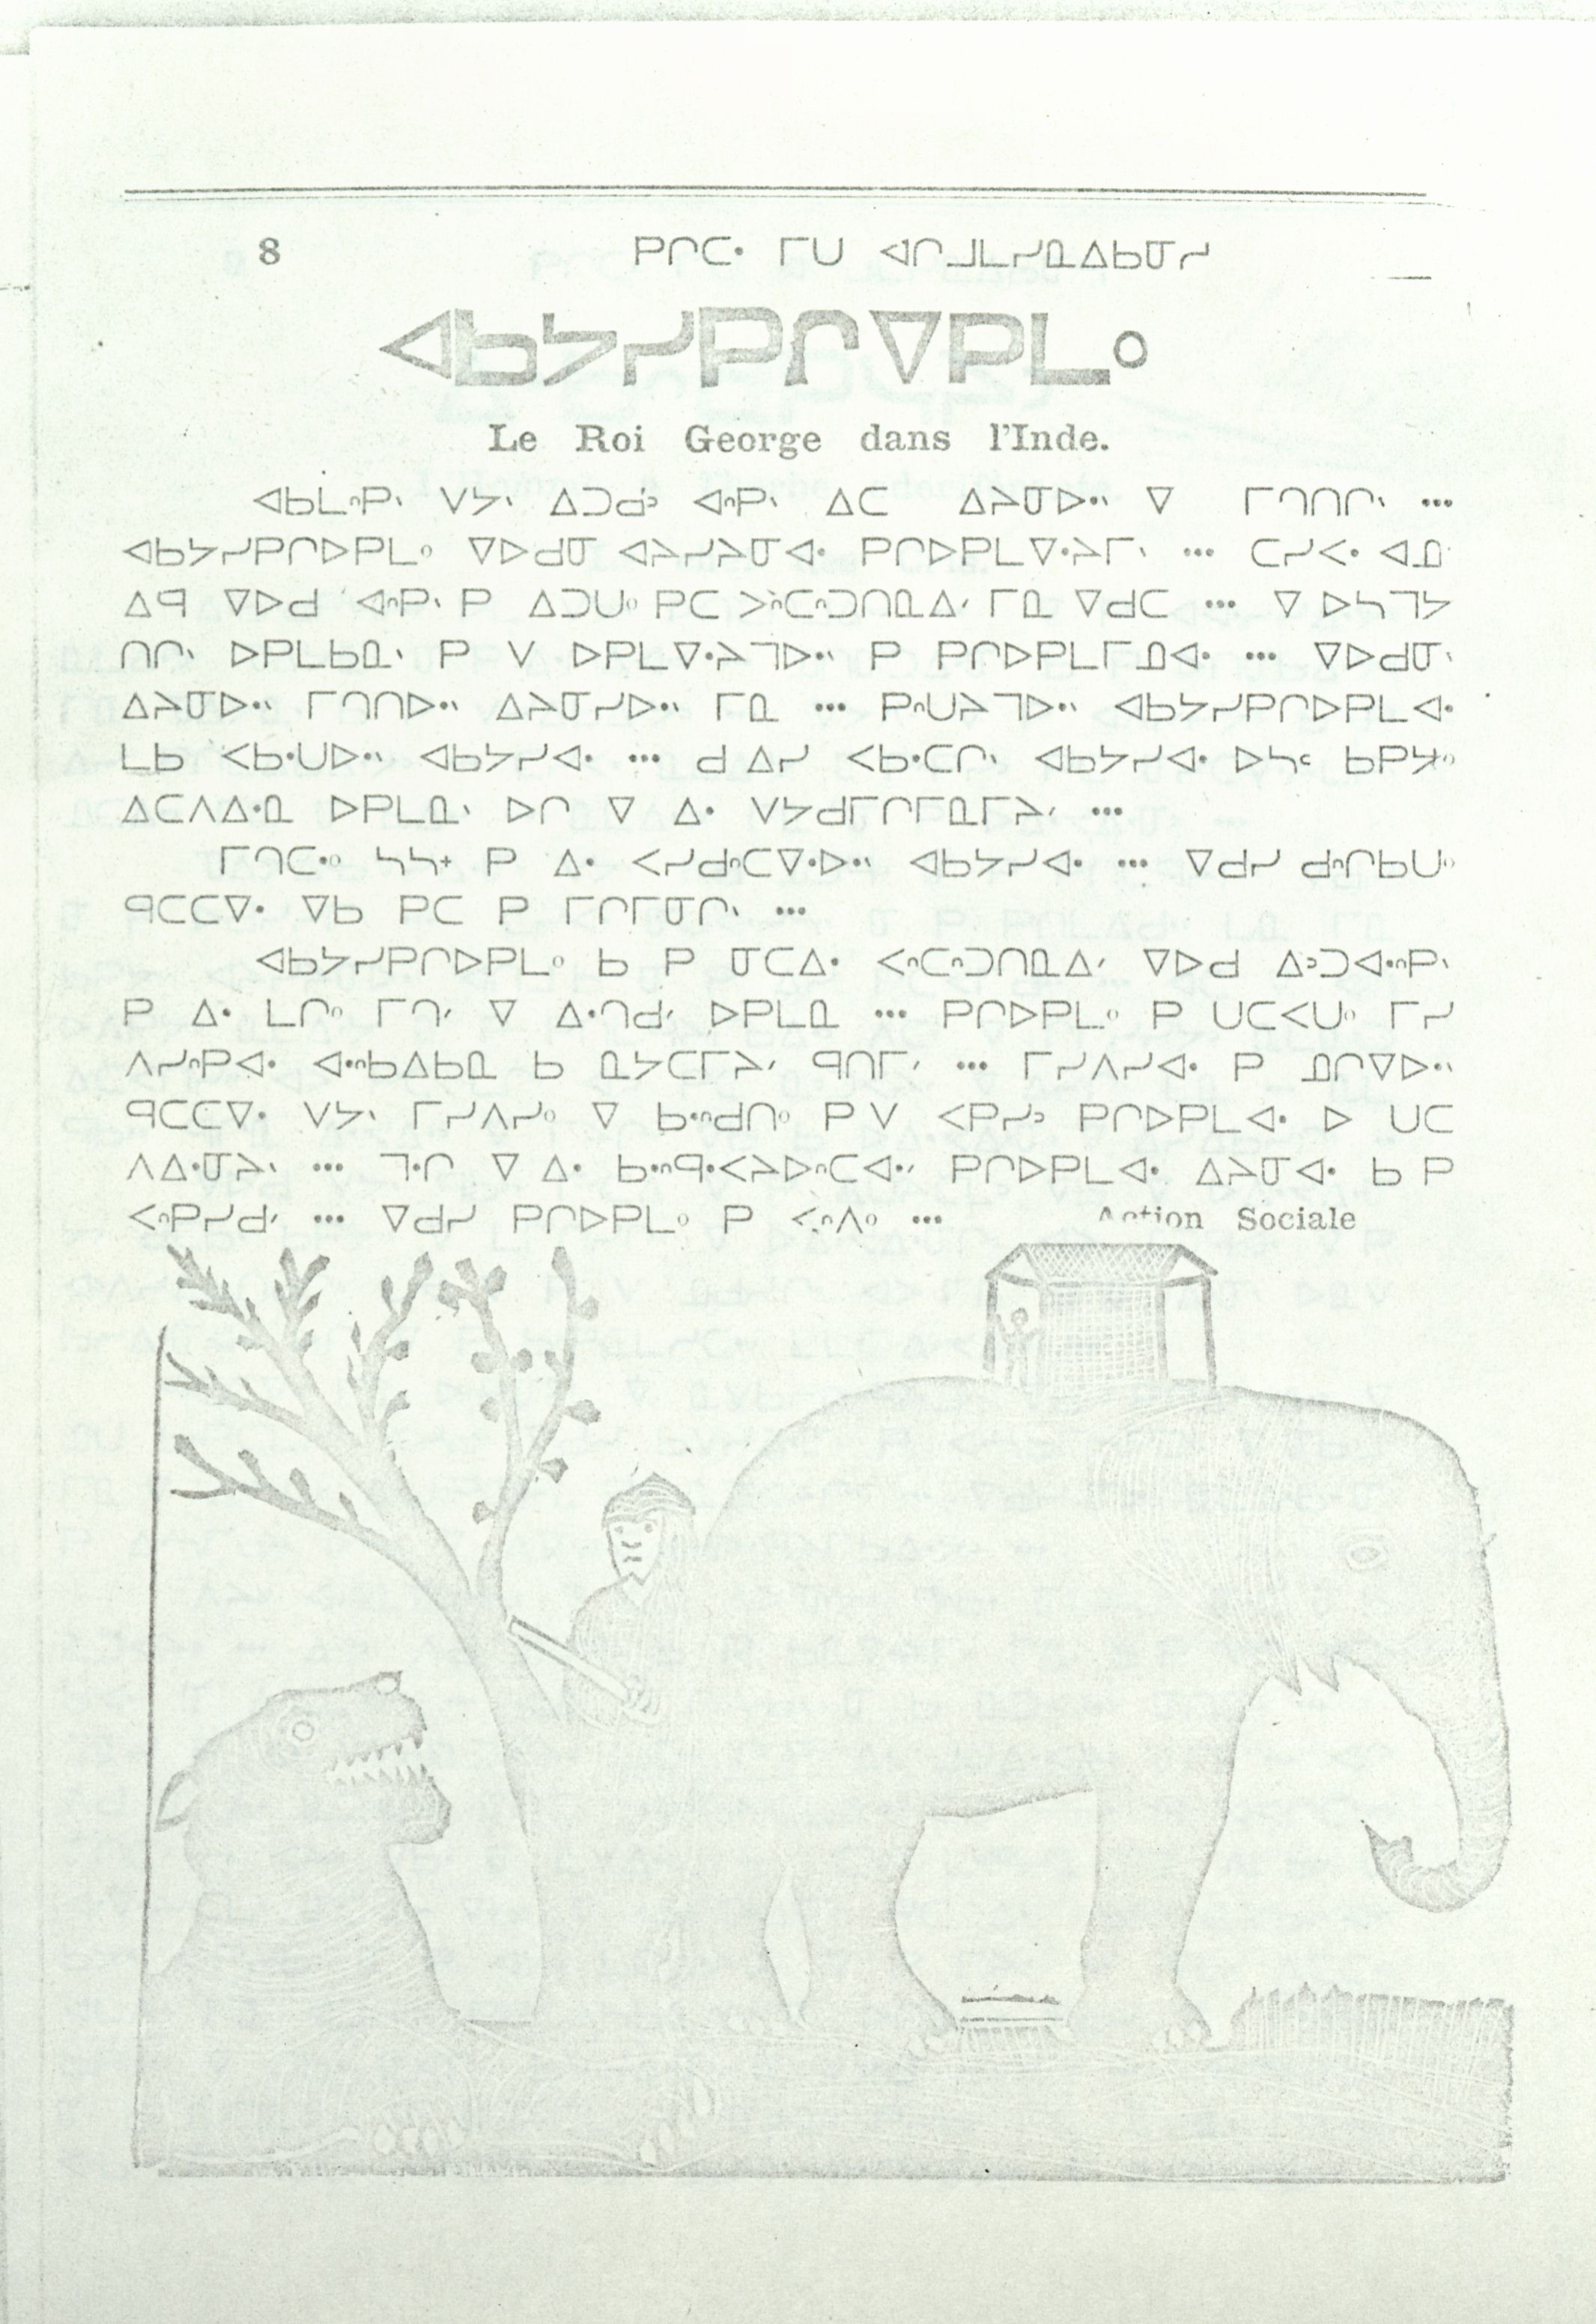 8 ᑭᒋᑕᐧ ᒥᑌ ᐊᒋᒧᒪᓯᓇᐃᑲᓂᓯ
ᐊᑲᔭᓯᑭᒋᐁᑭᒪᐤ
Le Roi George dans l'Inde.
ᐊᑲᒪᐢᑭᐠ ᐯᔭᐠ ᐃᑐᑯᐣ ᐊᐢᑭᐠ ᐃᑕ ᐃᔨᓂᐅᐧᐠ ᐁ ᒥᒉᑎᒋᐠ ...
ᐊᑲᔭᓯᑭᒋᐅᑭᒪᐤ ᐁᐅᑯᓂ ᐊᔨᓯᔨᓂᐊᐧ ᑭᒋᐅᑭᒪᐁᐧᔨᒥᐠ ... ᑕᓯᐸᐧ ᐊᓄ
ᐃᑫ ᐁᐅᑯ ᐊᐢᑭᐠ ᑭ ᐃᑐᑌᐤ ᑭᑕ ᐳᐢᑕᐢᑐᑎᓇᐃᐟ ᒥᓇ ᐁᑯᑕ ... ᐁ ᐅᓴᒣᔭ
ᑎᒋᐠ ᐅᑭᒪᑲᓇᐠ ᑭ ᐯ ᐅᑭᒪᐁᐧᔨᒣᐅᐧᐠ ᑭ ᑭᒋᐅᑭᒪᒥᓄᐊᐧ ... ᐁᐅᑯᓂᐠ
ᐃᔨᓂᐅᐧᐠ ᒥᒉᑎᐅᐧᐠ ᐃᔨᓂᓯᐅᐧᐠ ᒥᓇ ... ᑭᐢᑌᔨᒣᐅᐧᐠ ᐊᑲᔭᓯᑭᒋᐅᑭᒪᐊᐧ
ᒪᑲ ᐸᑲᐧᑌᐅᐧᐠ ᐊᑲᔭᓯᐊᐧ ... ᑯ ᐃᓯ ᐸᑲᐧᑕᒋᐠ ᐊᑲᔭᓯᐊᐧ
ᐃᑕᐱᐃᐧᓇ ᐅᑭᒪᓇᐠ ᐅᒋ ᐁ ᐃᐧ ᐯᔭᑯᒥᒋᒥᓇᒥᔨᐟ ...
ᒥᒉᑕᐧᐤ ᓴᓴᕀ ᑭ ᐃᐧ ᐸᓯᑯᐢᑕᐁᐧᐅᐧᐠ ᐊᑲᔭᓯᐊᐧ ... ᐁᑯᓯ ᑯᐢᒋᑲᑌᐤ
ᑫᑕᑕᐁᐧ ᐁᑲ ᑭᑕ ᑭ ᒥᒋᒥᓂᒋᐠ ...
ᐊᑲᔭᓯᑭᒋᐅᑭᒪᐤ ᑲ ᑭ ᓂᑕᐃᐧ ᐸᐢᑕᐢᑐᑎᓇᐃᐟ ᐁᐅᑯ ᐃᐣᑐᐊᐧᐢᑭᐠ
ᑭ ᐃᐧ ᒪᒋᐤ ᒥᒉᐟ ᐁ ᐃᐧᒉᑯᐟ ᐅᑭᒪᓇ ... ᑭᒋᐅᑭᒪᐤ ᑭ ᑌᑕᐸᑌᐤ ᒥᓯ
ᐱᓯᐢᑭᐊᐧ ᐊᐧᐢᑲᐃᑲᓇ ᑲ ᓇᔭᑕᒥᔨᐟ ᑫᑎᒥᐟ ... ᒥᓯᐱᓯᐊᐧ ᑭ ᓄᒋᐁᐅᐧᐠ
ᑫᑕᑕᐁᐧ ᐯᔭᐠ ᒥᓯᐱᓯᐤ ᐁ ᑲᐧᐢᑯᑎᐤ ᑭ ᐯ ᐸᑭᓯᐣ ᑭᒋᐅᑭᒪᐊᐧ ᐅ ᑌᑕ
ᐱᐃᐧᓂᔨᐠ ... ᒣᐧᒋ ᐁ ᐃᐧ ᑲᐧᐢᑫᐧᐸᔨᐅᐢᑕᐊᐧᐟ ᑭᒋᐅᑭᒪᐊᐧ ᐃᔨᓂᐊᐧ ᑲ ᑭ
ᐸᐢᑭᓯᑯᐟ ... ᐁᑯᓯ ᑭᒋᐅᑭᒪᐤ ᑭ ᐸᐢᐱᐤ ...
Action Sociale